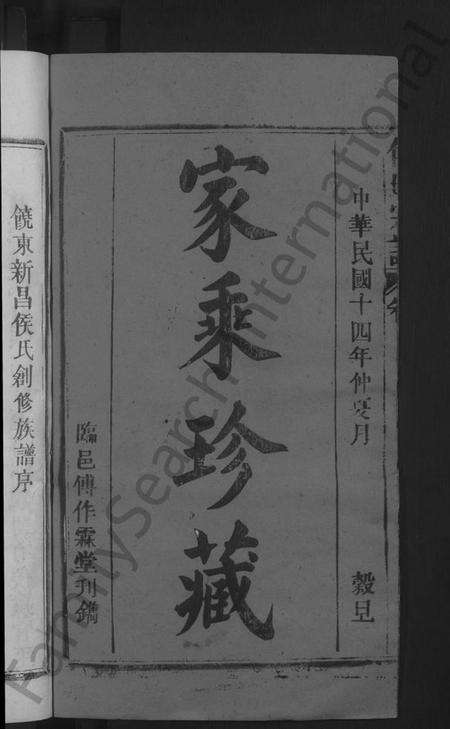 中華民國十四年仲夏月
穀旦
家乘珍藏
臨邑傅作霖堂刊鐫
饒東新昌侯氏創修族譜序
FamilySearch International